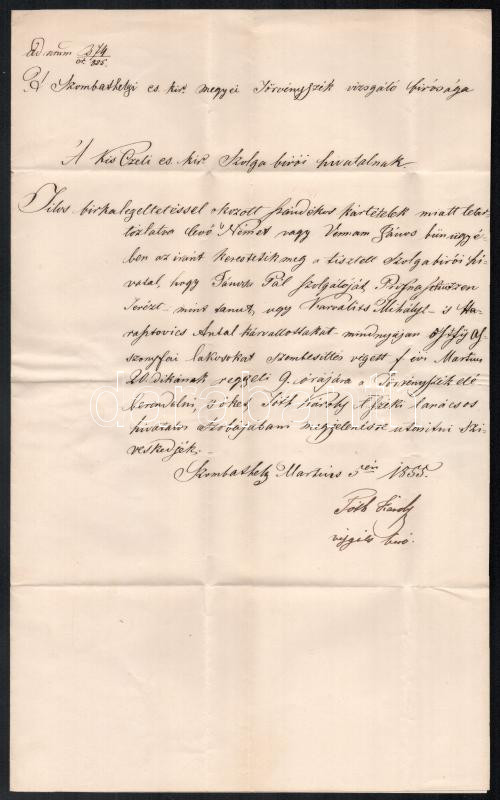 Ad num 374
cr. 855.
A Szombathelyi cs. kir. megyei Törvényszék vizsgáló birósága
A Kis Czeli cs. kir. Szolga birói hivatalnak
Tilos birkalegeltetéssel okozott szándékos kártételek miatt letar
tóztatva levő Német vagy János bünügyé
ben az iránt kerestetik meg a tisztelt Szolgabirói hi
vatal, hogy Pál szolgálóját
Terézt mint tanut, ugy Karvalits Mihályt is Ha
raptovics Antal kárvallottakat mindnyájan Ostffy As
szonyfai lakosokat szembesittés végett f. évi Martius
20-dikának reggeli 9. órájára a Törvényszék elé
berendelni, s őket Tóth Károly tanácsos
hivatalos szobájábani megjelenésre utasitni szi
veskedjék.
Szombathely Martius 5én 1855.
Tóth Károly
vizsgáló biró.
darabanth